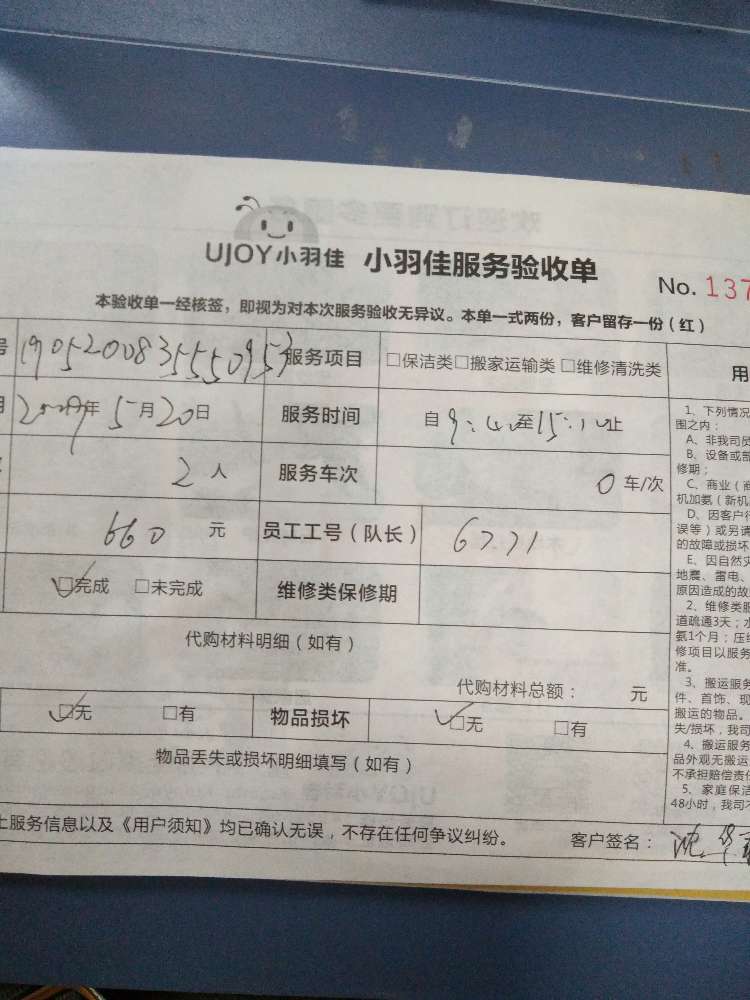 UJOY小羽佳 小羽佳服务验收单
No. 137
本验收单一经核签，即视为对本次服务验收无异议。本单一式两份，客户留存一份（红）
号 19052008355550953 服务项目 □保洁类□搬家运输类 □维修清洗类
期 2019年5月20日 服务时间 自9:40至15:10止
2人 服务车次 0车/次
660 元 员工工号（队长） 6771
☑完成 □未完成 维修类保修期
代购材料明细（如有）
代购材料总额： 元
☑无 □有 物品损坏 ☑无 □有
物品丢失或损坏明细填写（如有）
上服务信息以及《用户须知》均已确认无误，不存在任何争议纠纷。 客户签名：
用
1、下列情况
围之内：
A、非我司员
B、设备或部
修期；
C、商业（商
机加氨（新机
D、因客户行
误等）或另请
的故障或损坏
E、因自然灾
地震、雷电、
原因造成的故
2、维修类服
道疏通3天；水
氨1个月；压缩
修项目以服务
准。
3、搬运服务
件、首饰、现
搬运的物品。
失/损坏，我司
4、搬运服务
品外观无搬运
不承担赔偿责任
5、家庭保洁
48小时，我司不